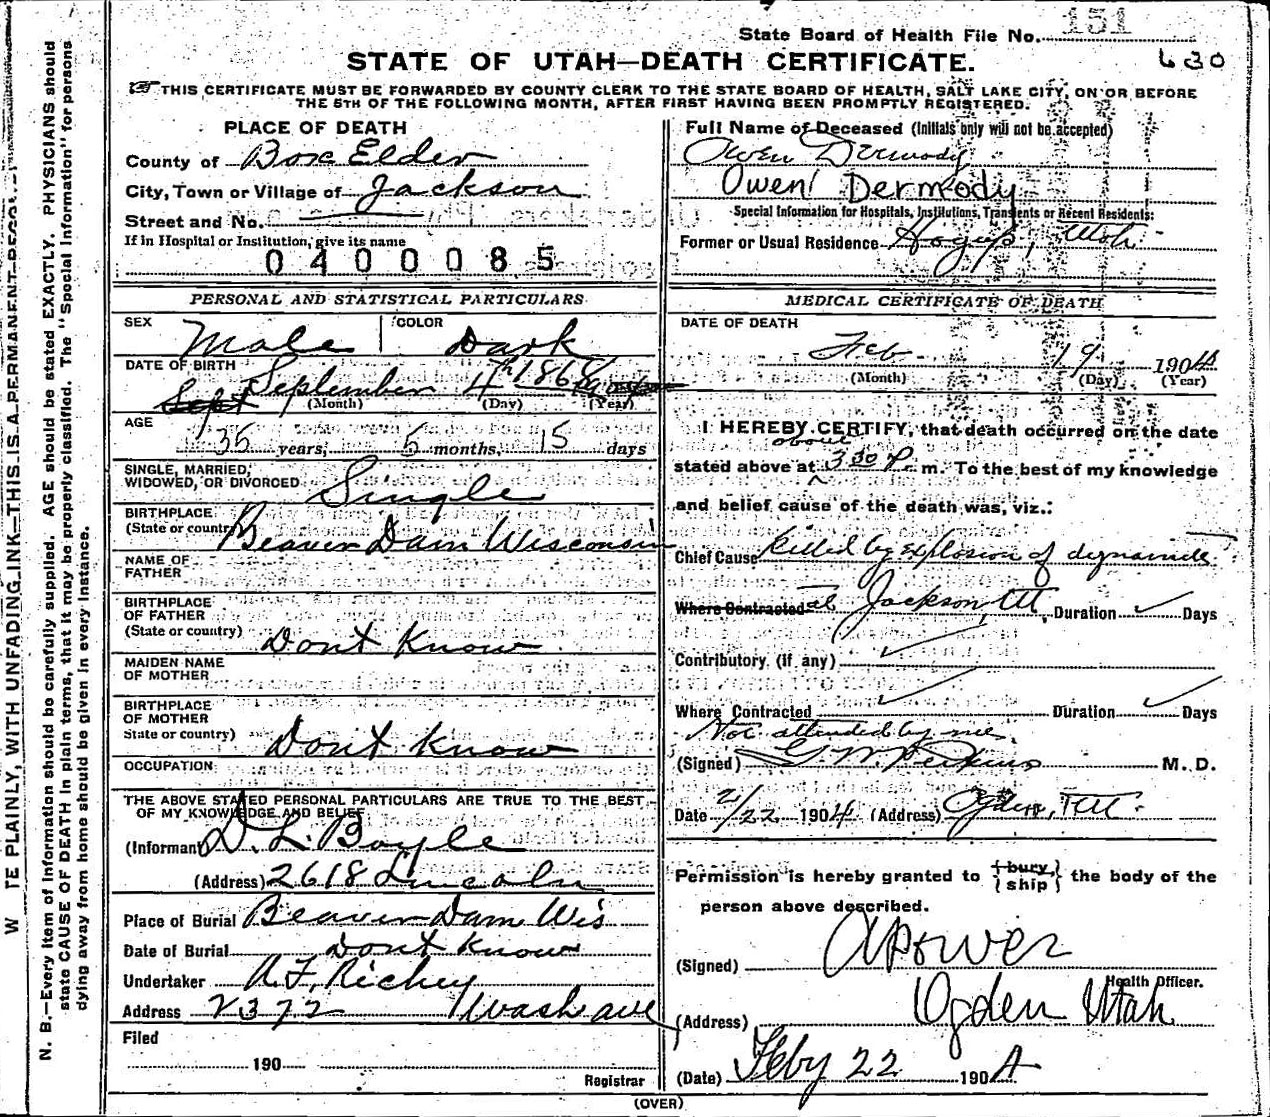 State Board of Health File No. 151
STATE OF UTAH—DEATH CERTIFICATE.
630
THIS CERTIFICATE MUST BE FORWARDED BY COUNTY CLERK TO THE STATE BOARD OF HEALTH, SALT LAKE CITY, ON OR BEFORE
THE 5TH OF THE FOLLOWING MONTH, AFTER FIRST HAVING BEEN PROMPTLY REGISTERED.
PLACE OF DEATH
County of Box Elder
City, Town or Village of Jackson
Street and No.
If in Hospital or Institution, give its name
0400085
PERSONAL AND STATISTICAL PARTICULARS
SEX Male COLOR Dark
DATE OF BIRTH
Sept September 4th 1868
(Month) (Day) (Year)
AGE
35 years, 5 months, 15 days
SINGLE, MARRIED,
WIDOWED, OR DIVORCED Single
BIRTHPLACE
(State or country) Beaver Dam Wisconsin
NAME OF
FATHER
BIRTHPLACE
OF FATHER
(State or country) Dont Know
MAIDEN NAME
OF MOTHER
BIRTHPLACE
OF MOTHER
State or country) Dont Know
OCCUPATION
THE ABOVE STATED PERSONAL PARTICULARS ARE TRUE TO THE BEST
OF MY KNOWLEDGE AND BELIEF
(Informant D. L. Boyle
(Address) 2618 Lincoln
Place of Burial Beaver Dam Wis
Date of Burial Dont Know
Undertaker A. F. Richey
Address 2372 Wash ave
Filed
190
Registrar
Full Name of Deceased (Initials only will not be accepted)
Owen Dermody
Owen Dermody
Special Information for Hospitals, Institutions, Transients or Recent Residents:
Former or Usual Residence Hogup, Utah
MEDICAL CERTIFICATE OF DEATH
DATE OF DEATH
Feb 19 1904
(Month) (Day) (Year)
I HEREBY CERTIFY, that death occurred on the date
about
stated above at 3 30 P. m. To the best of my knowledge
and belief cause of the death was, viz.:
Chief Cause killed by explosion of dynamite
Where Contracted at Jackson, Ut, Duration Days
Contributory (if any)
Where Contracted Duration Days
Not attended by me.
(Signed) G. W. Perkins M. D.
Date 2/22 1904 (Address) Ogden, Ut.
Permission is hereby granted to {bury/ship} the body of the
person above described.
(Signed) A Power
Health Officer.
(Address) Ogden Utah
(Date) Feby 22 1904
(OVER)
N. B.—Every item of information should be carefully supplied. AGE should be stated EXACTLY. PHYSICIANS should
state CAUSE OF DEATH in plain terms, that it may be properly classified. The "Special Information" for persons
dying away from home should be given in every instance.
TE PLAINLY, WITH UNFADING INK—THIS IS A PERMANENT